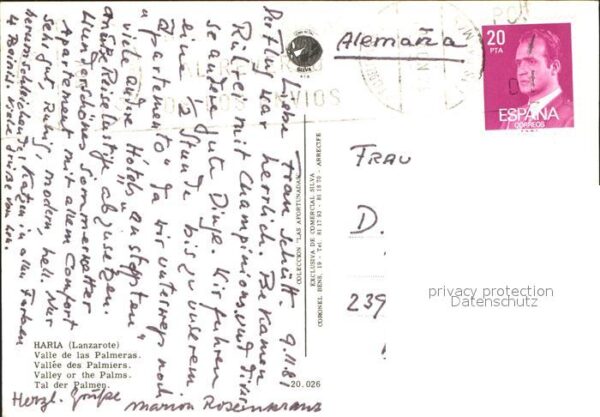 Alemaña
20
PTA
ESPAÑA
CORREOS
ENVIOS
9.11.81
Liebe Frau Schütt.
Der Flug war herrlich. Bekamen
Rührei mit Champinions und diver-
se andere gute Dinge. Wir fuhren
eine 1/2 Stunde bis zu unserem
Apartemento" da wir unterwegs noch
viele andere Hotels "anstoppten"
um die Reiselustige abzusetzen.
Wunderschönes Sommerwetter
Apartement mit allem Comfort
sehr gut, Ruhig, modern, hell. Nur
herumschleichende Katzen in allen Farben
Viele Grüße von
Herzl. Grüße Marion Rosenkranz
SILVA
COLECCION "LAS AFORTUNADAS"
EXCLUSIVA DE COMERCIAL SILVA
CORONEL BENS, 19 - Tel. 81 17 93 - 81 18 70 - ARRECIFE
FRAU
D.
239
privacy protection
Datenschutz
HARIA (Lanzarote)
Valle de las Palmeras.
Vallée des Palmiers.
Valley or the Palms.
Tal der Palmen.
20.026